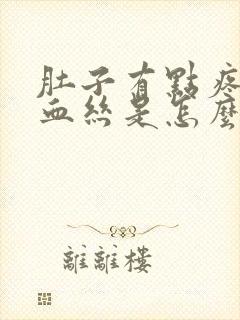 肚子有點疼
血絲是怎麼
離離樓